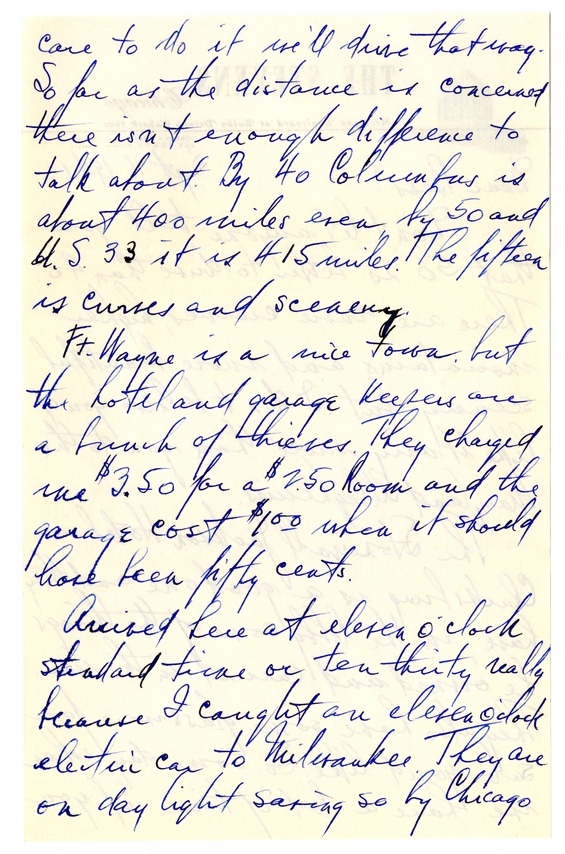 care to do it we'll drive that way.
So far as the distance is concerned
there isn't enough difference to
talk about. By 40 Columbus is
about 400 miles even, by 50 and
U.S. 33 it is 415 miles. The fifteen
is curves and scenery.
Ft. Wayne is a nice town, but
the hotel and garage keepers are
a bunch of thieves. They charged
me $3.50 for a $2.50 Room and the
garage cost $1.00 when it should
have been fifty cents.
Arrived here at eleven o'clock
standard time or ten thirty really
because I caught an eleven o'clock
electric car to Milwaukee. They are
on day light saving so by Chicago